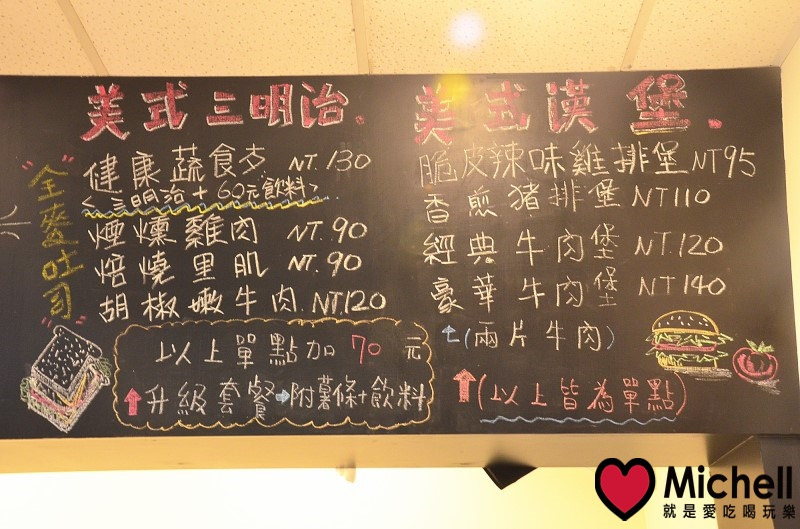 美式三明治.
"全麥吐司"
健康蔬食多 NT.130
<三明治+60元飲料>
煙燻雞肉 NT.90
焙燒里肌 NT.90
胡椒嫩牛肉 NT.120
以上單點加70元
升級套餐 附薯條+飲料
美式漢堡.
脆皮辣味雞排堡 NT95
香煎豬排堡 NT110
經典牛肉堡 NT.120
豪華牛肉堡 NT140
(兩片牛肉)
(以上皆為單點)
Michell
就是愛吃喝玩樂